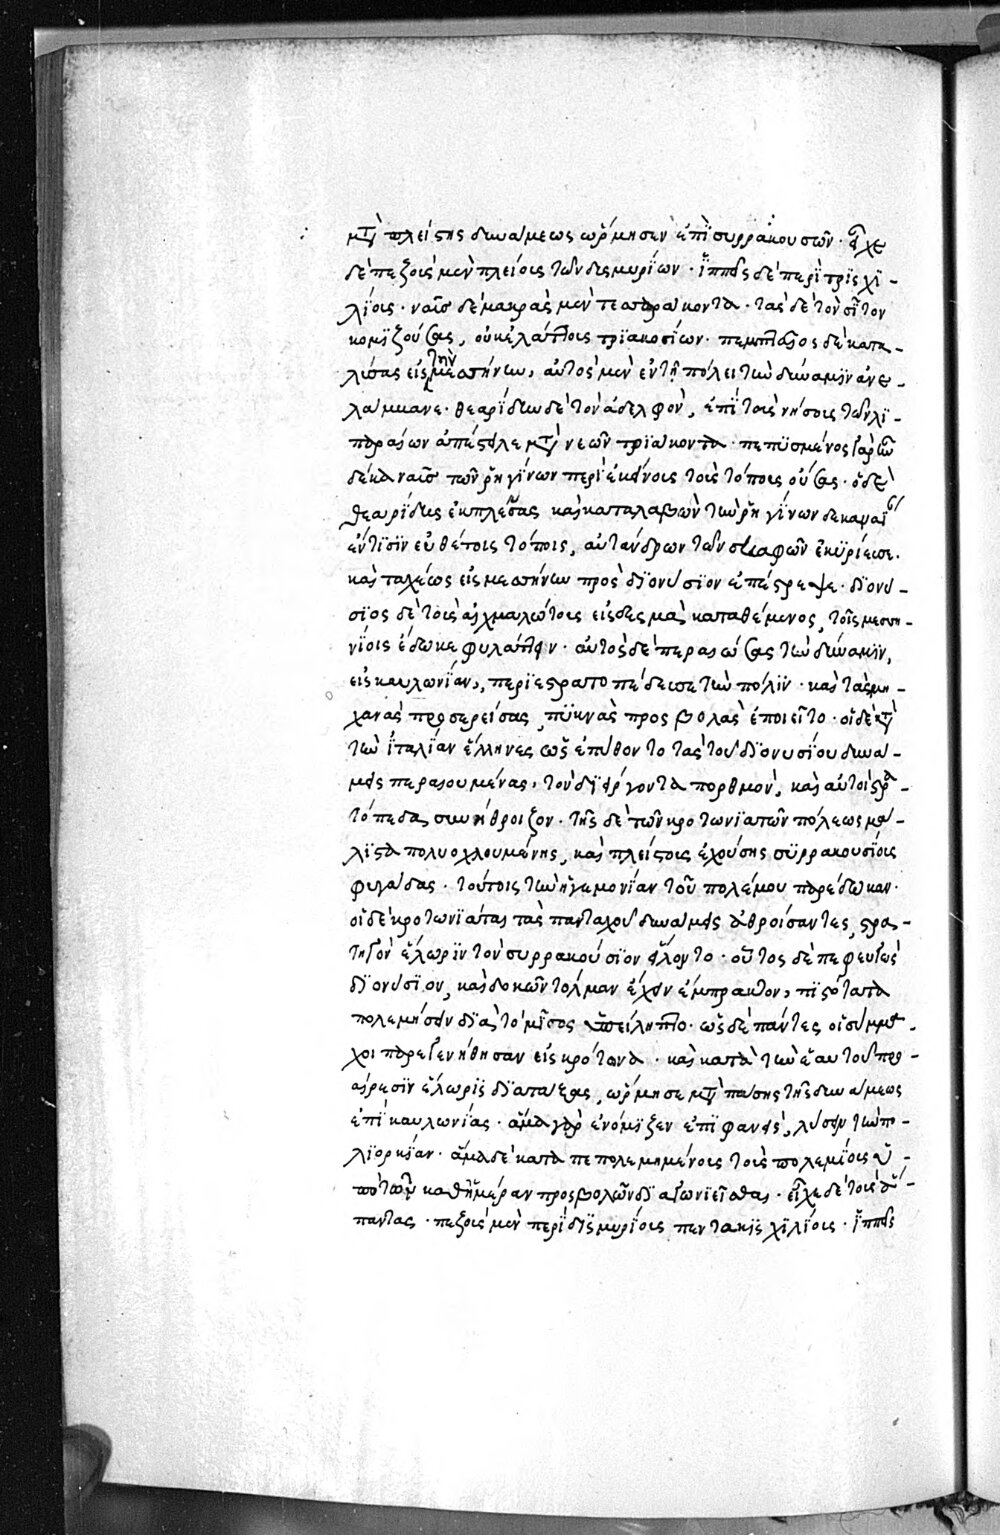 μετὰ πλείστης δυνάμεως ὥρμησεν ἐπὶ συρρακουσῶν· εἶχε
δὲ πεζοὺς μὲν πλείους τῶν δισμυρίων· ἱππεῖς δὲ περὶ τρισχι-
λίους· ναῦς δὲ μακρὰς μὲν τεσσαράκοντα· τὰς δὲ τὸν σῖτον
κομιζούσας, οὐκ ἐλάττους τριακοσίων· πεμπταῖος δὲ κατα-
λύσας εἰς τὴν μεσσήνην, αὐτὸς μὲν ἐν τῇ πόλει τὴν δύναμιν ἀνε-
λάμβανε· θεαρίδην δὲ τὸν ἀδελφὸν, ἐπὶ τοὺς νήσους τῶν λι-
παραίων ἀπέστειλε μετὰ νεῶν τριάκοντα· πεπυσμένος γὰρ ἦν
δέκα ναῦς τῶν ῥηγίνων περὶ ἐκείνους τοὺς τόπους οὔσας· ὁ δὲ
θεαρίδης ἐκπλεύσας καὶ καταλαβὼν τῶν ῥηγίνων δέκα ναῦς
ἔν τισιν εὐθέτοις τόποις, αὐτάνδρων τῶν σκαφῶν ἐκυρίευσε·
καὶ ταχέως εἰς μεσσήνην πρὸς διονύσιον ἐπέστρεψε· διονύ-
σιος δὲ τοὺς αἰχμαλώτους εἰς δεσμὰ καταθέμενος, τοῖς μεσση-
νίοις ἔδωκε φυλάττειν· αὐτὸς δὲ περαιώσας τὴν δύναμιν,
εἰς καυλωνίαν, περιεστρατοπέδευσε τὴν πόλιν· καὶ τὰς μη-
χανὰς προσερείσας, πυκνὰς προσβολὰς ἐποιεῖτο· οἱ δὲ κατὰ
τὴν ἰταλίαν ἕλληνες ὡς ἐπύθοντο τὰς τοῦ διονυσίου δυνά-
μεις περαιουμένας, τὸν διείργοντα πορθμὸν, καὶ αὐτοὶ στρα-
τόπεδα συνήθροιζον· τῆς δὲ τῶν κροτωνιατῶν πόλεως μά-
λιστα πολυοχλουμένης, καὶ πλείστους ἐχούσης συρρακουσίους
φυγάδας· τούτοις τὴν ἡγεμονίαν τοῦ πολέμου παρέδωκαν·
οἱ δὲ κροτωνιάται τὰς πανταχοῦ δυνάμεις ἀθροίσαντες, στρα-
τηγὸν ἕλωριν τὸν συρρακούσιον εἵλοντο· οὗτος δὲ πεφευγὼς
διονύσιον, καὶ δοκῶν τόλμαν ἔχειν ἔμπρακτον, πιστότατα
πολεμήσειν διὰ τὸ μῖσος ὑπείληπτο· ὡς δὲ πάντες οἱ σύμμα-
χοι παρεγενήθησαν εἰς κρότωνα· καὶ κατὰ τὴν ἑαυτοῦ προ-
αίρεσιν ἕλωρις διατάξας, ὥρμησε μετὰ πάσης τῆς δυνάμεως
ἐπὶ καυλωνίας· ἅμα γὰρ ἐνόμιζεν ἐπιφανεὶς, λύσειν τὴν πο-
λιορκίαν· ἅμα δὲ καταπεπολεμημένοις τοῖς πολεμίοις ὑ-
πὸ τῶν καθημέραν προσβολῶν διαγωνιεῖσθαι· εἶχε δὲ τοὺς ἅ-
παντας· πεζοὺς μὲν περὶ δισμυρίους πεντακισχιλίους· ἱππεῖς